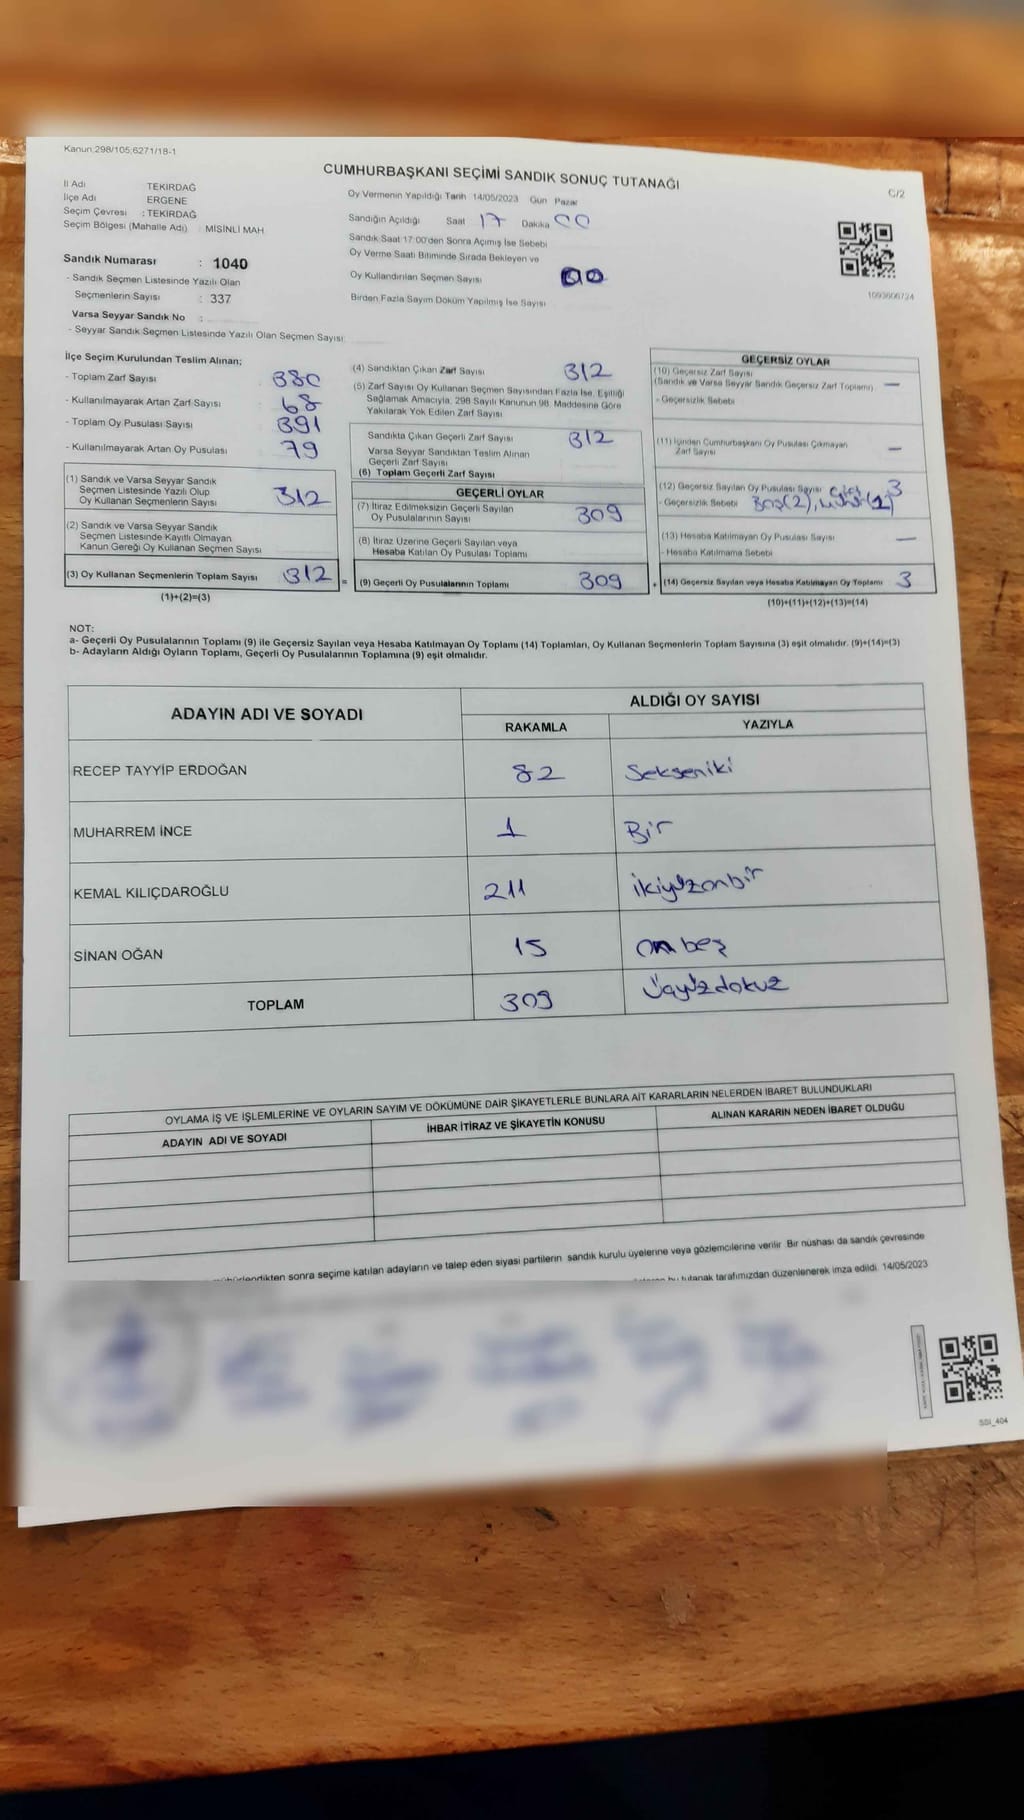 Kanun:298/105;6271/18-1
CUMHURBAŞKANI SEÇİMİ SANDIK SONUÇ TUTANAĞI
C/2
İl Adı TEKİRDAĞ
İlçe Adı ERGENE
Seçim Çevresi : TEKİRDAĞ
Seçim Bölgesi (Mahalle Adı) : MISİNLİ MAH
Sandık Numarası : 1040
- Sandık Seçmen Listesinde Yazılı Olan
Seçmenlerin Sayısı : 337
Varsa Seyyar Sandık No :
- Seyyar Sandık Seçmen Listesinde Yazılı Olan Seçmen Sayısı:
Oy Vermenin Yapıldığı Tarih 14/05/2023 Gün Pazar
Sandığın Açıldığı Saat 17 Dakika 00
Sandık Saat 17:00'den Sonra Açımış İse Sebebi
Oy Verme Saati Bitiminde Sırada Bekleyen ve
Oy Kullandırılan Seçmen Sayısı
Birden Fazla Sayım Döküm Yapılmış İse Sayısı
1093606724
İlçe Seçim Kurulundan Teslim Alınan;
- Toplam Zarf Sayısı : 380
- Kullanılmayarak Artan Zarf Sayısı : 68
- Toplam Oy Pusulası Sayısı : 391
- Kullanılmayarak Artan Oy Pusulası : 79
(1) Sandık ve Varsa Seyyar Sandık
Seçmen Listesinde Yazılı Olup
Oy Kullanan Seçmenlerin Sayısı 312
(2) Sandık ve Varsa Seyyar Sandık
Seçmen Listesinde Kayıtlı Olmayan
Kanun Gereği Oy Kullanan Seçmen Sayısı
(3) Oy Kullanan Seçmenlerin Toplam Sayısı 312 =
(1)+(2)=(3)
(4) Sandıktan Çıkan Zarf Sayısı 312
(5) Zarf Sayısı Oy Kullanan Seçmen Sayısından Fazla İse, Eşitliği
Sağlamak Amacıyla, 298 Sayılı Kanunun 98. Maddesine Göre
Yakılarak Yok Edilen Zarf Sayısı
Sandıkta Çıkan Geçerli Zarf Sayısı 312
Varsa Seyyar Sandıktan Teslim Alınan
Geçerli Zarf Sayısı
(6) Toplam Geçerli Zarf Sayısı
GEÇERLİ OYLAR
(7) İtiraz Edilmeksizin Geçerli Sayılan
Oy Pusulalarının Sayısı 309
(8) İtiraz Üzerine Geçerli Sayılan veya
Hesaba Katılan Oy Pusulası Toplamı
(9) Geçerli Oy Pusulalarının Toplamı 309 +
GEÇERSİZ OYLAR
(10) Geçersiz Zarf Sayısı
(Sandık ve Varsa Seyyar Sandık Geçersiz Zarf Toplamı) —
- Geçersizlik Sebebi
(11) İçinden Cumhurbaşkanı Oy Pusulası Çıkmayan
Zarf Sayısı —
(12) Geçersiz Sayılan Oy Pusulası Sayısı 3
- Geçersizlik Sebebi
(13) Hesaba Katılmayan Oy Pusulası Sayısı —
- Hesaba Katılmama Sebebi
(14) Geçersiz Sayılan veya Hesaba Katılmayan Oy Toplamı 3
(10)+(11)+(12)+(13)=(14)
NOT:
a- Geçerli Oy Pusulalarının Toplamı (9) ile Geçersiz Sayılan veya Hesaba Katılmayan Oy Toplamı (14) Toplamları, Oy Kullanan Seçmenlerin Toplam Sayısına (3) eşit olmalıdır. (9)+(14)=(3)
b- Adayların Aldığı Oyların Toplamı, Geçerli Oy Pusulalarının Toplamına (9) eşit olmalıdır.
ADAYIN ADI VE SOYADI
ALDIĞI OY SAYISI
RAKAMLA YAZIYLA
RECEP TAYYİP ERDOĞAN 82 Sekseniki
MUHARREM İNCE 1 Bir
KEMAL KILIÇDAROĞLU 211 ikiyüzonbir
SİNAN OĞAN 15 on beş
TOPLAM 309 üçyüzdokuz
OYLAMA İŞ VE İŞLEMLERİNE VE OYLARIN SAYIM VE DÖKÜMÜNE DAİR ŞİKAYETLERLE BUNLARA AİT KARARLARIN NELERDEN İBARET BULUNDUKLARI
ADAYIN ADI VE SOYADI İHBAR İTİRAZ VE ŞİKAYETİN KONUSU ALINAN KARARIN NEDEN İBARET OLDUĞU
sonra seçime katılan adayların ve talep eden siyasi partilerin sandık kurulu üyelerine veya gözlemcilerine verilir. Bir nüshası da sandık çevresinde
bu tutanak tarafımızdan düzenlenerek imza edildi. 14/05/2023
SSI_404